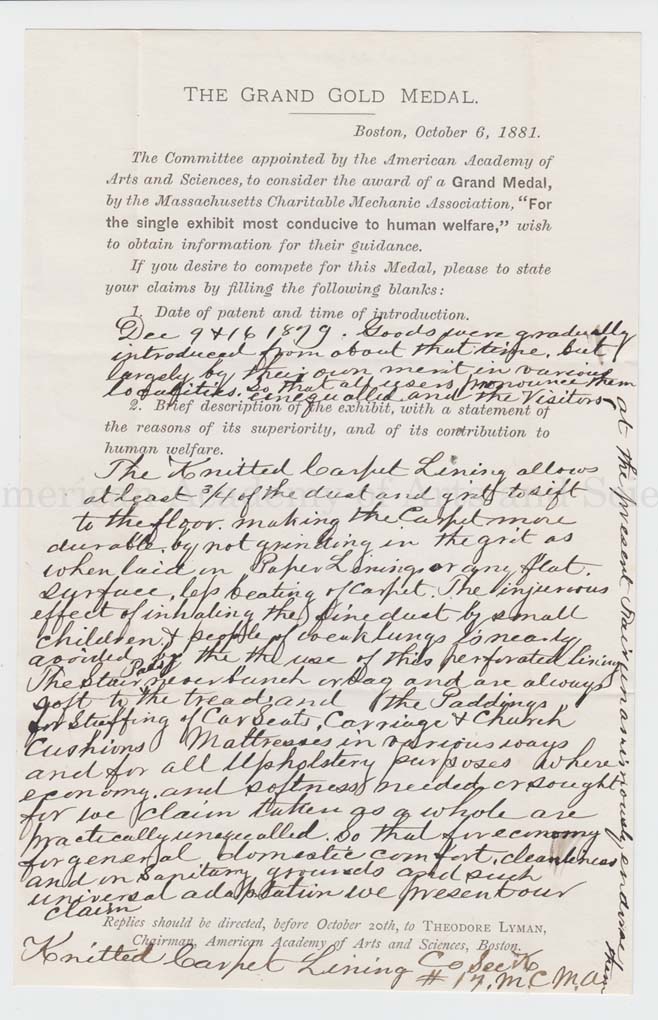 THE GRAND GOLD MEDAL.
Boston, October 6, 1881.
The Committee appointed by the American Academy of
Arts and Sciences, to consider the award of a Grand Medal,
by the Massachusetts Charitable Mechanic Association, "For
the single exhibit most conducive to human welfare," wish
to obtain information for their guidance.
If you desire to compete for this Medal, please to state
your claims by filling the following blanks:
1. Date of patent and time of introduction.
Dec 9 & 16 1879. Goods were gradually
introduced from about that time, but
largely by their own merit in various
localities. So that all users pronounce them
unequalled and the Visitors
at the present Fair unanimously endorse them
2. Brief description of the exhibit, with a statement of
the reasons of its superiority, and of its contribution to
human welfare.
The Knitted Carpet Lining allows
at least 3/4 of the dust and grit to sift
to the floor. making the Carpet more
durable by not grinding in the grit as
when laid on Paper Linings or any flat
surface, less beating of Carpet. The injurious
effect of inhaling the fine dust by small
children & people of weak lungs is nearly
avoided by the the use of this perforated lining
The Stair Pads never bunch or sag and are always
soft to the tread and the Paddings
for Stuffing of Car Seats, Carriage & Church
Cushions Mattresses in various ways
and for all Upholstery purposes where
economy and softness needed or sought
for we claim taken as a whole are
practically unequalled. So that for economy
for general domestic comfort, cleanliness
and on Sanitary grounds and such
universal adaptation we present our
claim
Replies should be directed, before October 20th, to THEODORE LYMAN,
Chairman, American Academy of Arts and Sciences, Boston.
Knitted Carpet Lining Co
# 17, M.C.M.A.
American Academy of Arts and Scie